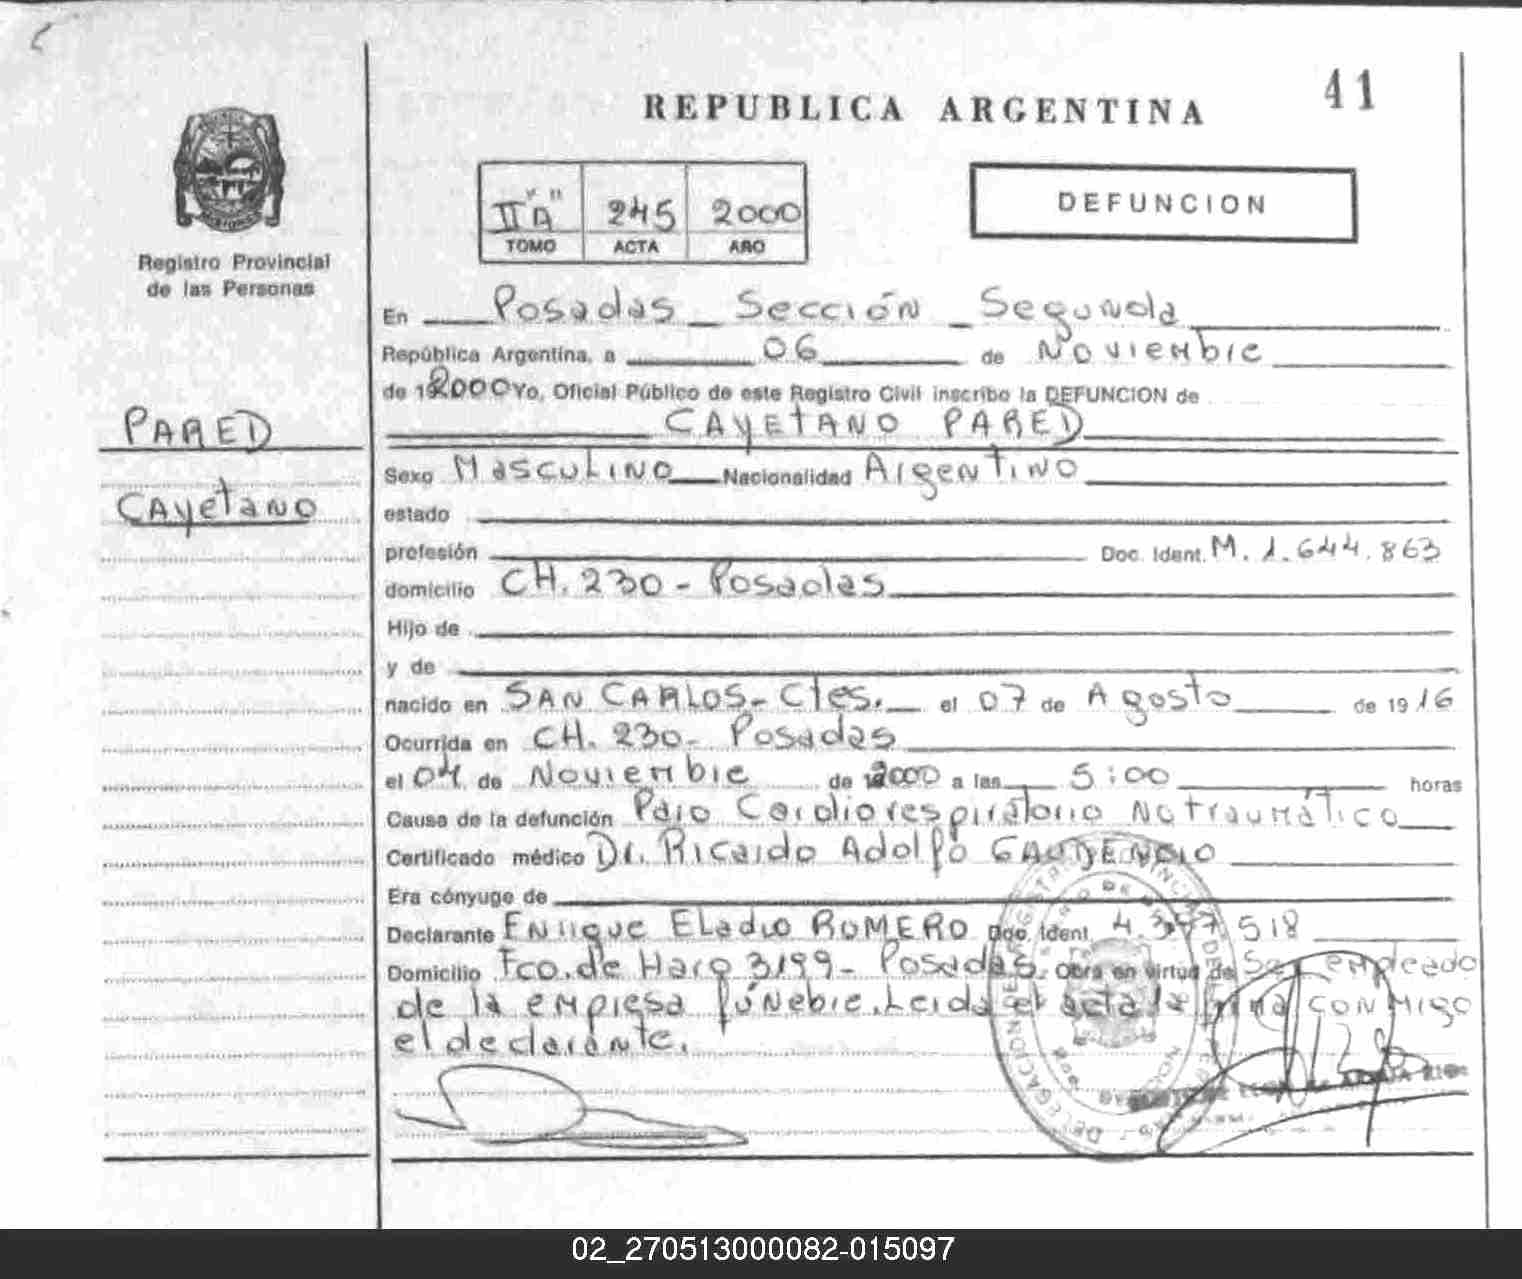 41
REPUBLICA ARGENTINA
II "A" 245 2000
TOMO ACTA AÑO
DEFUNCION
Registro Provincial
de las Personas
PARED
Cayetano
En Posadas - Sección - Segunda
República Argentina, a 06 de Noviembre
de 2000 Yo, Oficial Público de este Registro Civil inscribo la DEFUNCION de
CAYETANO PARED
Sexo Masculino Nacionalidad Argentino
estado
profesión Doc. Ident. M. 1.644.863
domicilio CH. 230 - Posadas
Hijo de
y de
nacido en SAN CARLOS - Ctes. el 07 de Agosto de 1916
Ocurrida en CH. 230 - Posadas
el 04 de Noviembre de 2000 a las 5:00 horas
Causa de la defunción Paro Cardiorespiratorio No traumático
Certificado médico Dr. Ricardo Adolfo GAUDENCIO
Era cónyuge de
Declarante Enrique Eladio ROMERO Doc. Ident. 4.397.518
Domicilio Fco. de Haro 3199 - Posadas. Obra en virtud de Ser empleado
de la empresa fúnebre. Leida el acta la firma conmigo
el declarante.
02_270513000082-015097